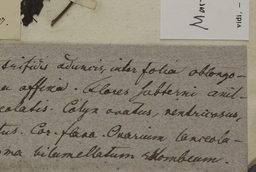 Mar
vidi, —
strifidis aduncis, inter folia oblongo-
affinia. Flores subterni axil-
colatis. Calyx ovatus, ventricosus,
tus. Cor. flava. Ovarium lanceola-
ma bilamellatum rhombeum.